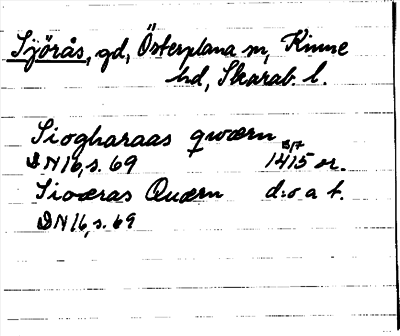 Sjörås, gd, Österplana sn, Kinne
hd, Skarab. l.
Siogharaas qwærn 8/7
DN 16, s. 69 1415 or.
Sioæras Quærn d:o a t.
DN 16, s. 69